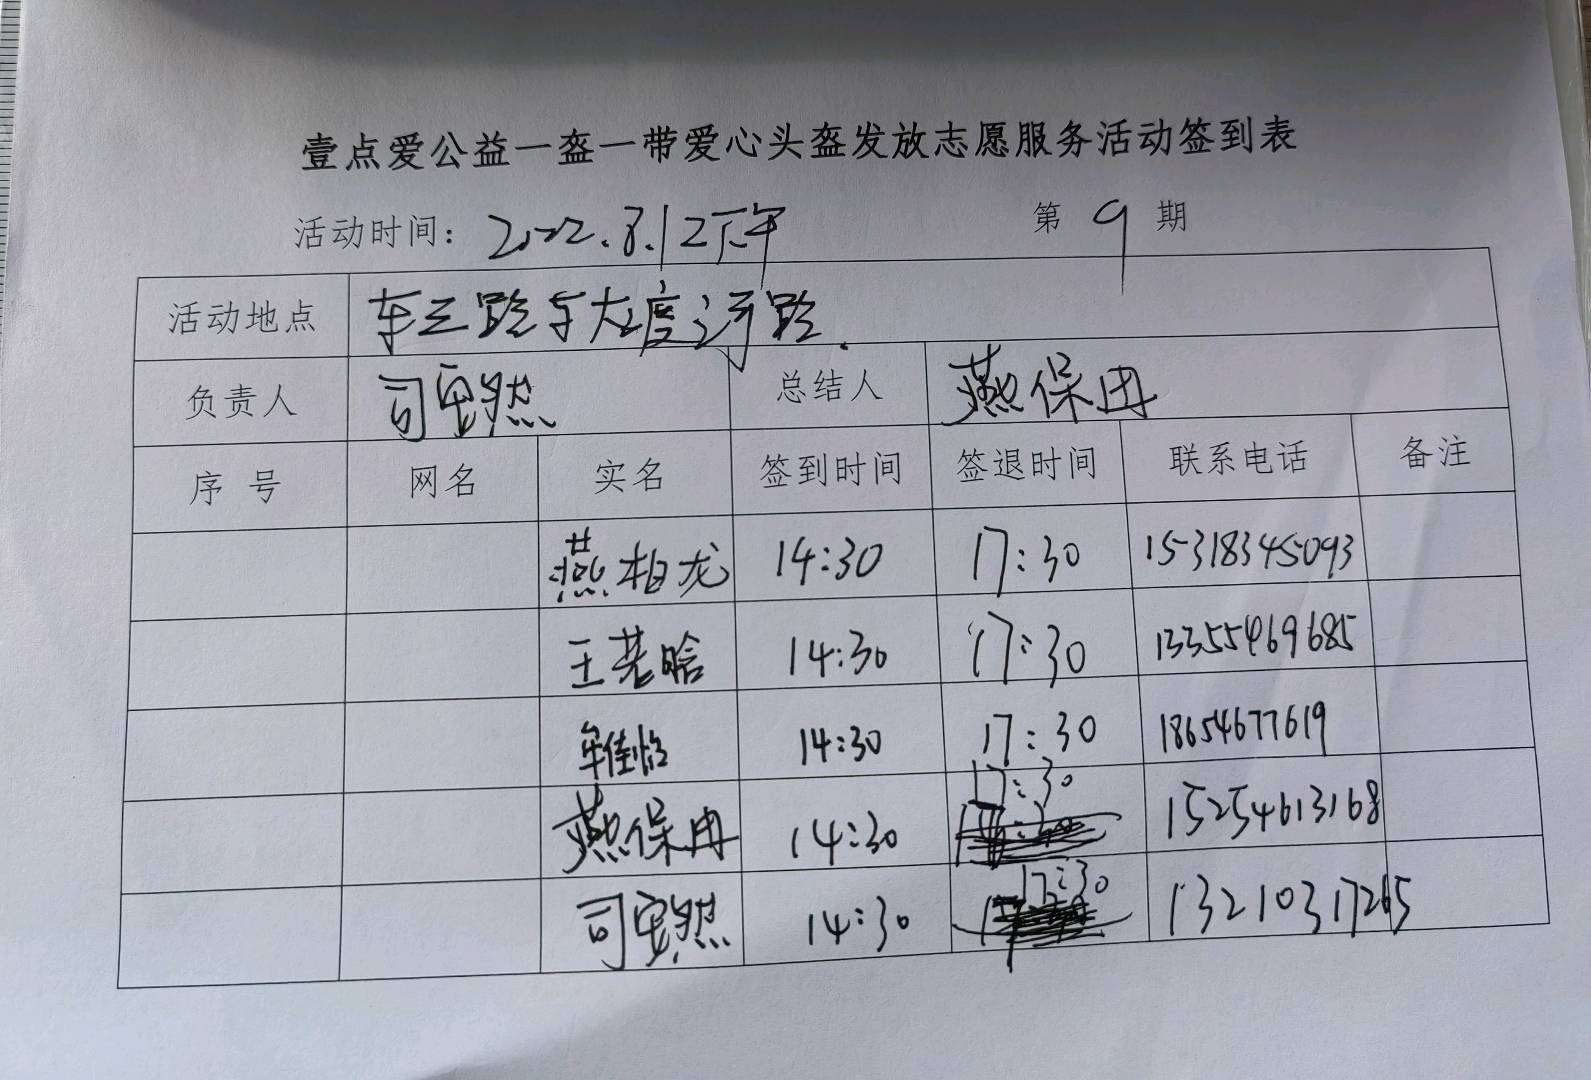 壹点爱公益一盔一带爱心头盔发放志愿服务活动签到表
活动时间：2022.8.12下午 第 9 期
活动地点 车三路与大渡河路.
负责人 司 然 总结人 燕保冉
序 号 网名 实名 签到时间 签退时间 联系电话 备注
燕柏龙 14:30 17:30 15318345093
王若晗 14:30 17:30 13355469685
牟佳怡 14:30 17:30 18654677619
燕保冉 14:30 17:30 15254613168
司 然 14:30 17:30 13210317265